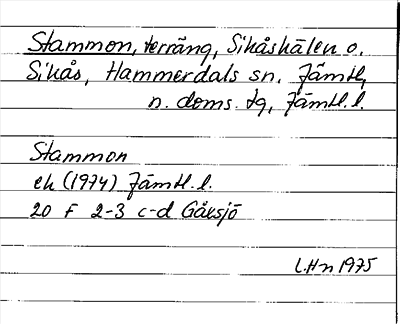 Stammon, terräng, Sikåskälen o.
Sikås, Hammerdals sn, Jämtl,
n. doms. tg, Jämtl. l.
Stammon
ek (1974) Jämtl. l.
20 F 2-3 c-d Gåxsjö
L.Hn 1975